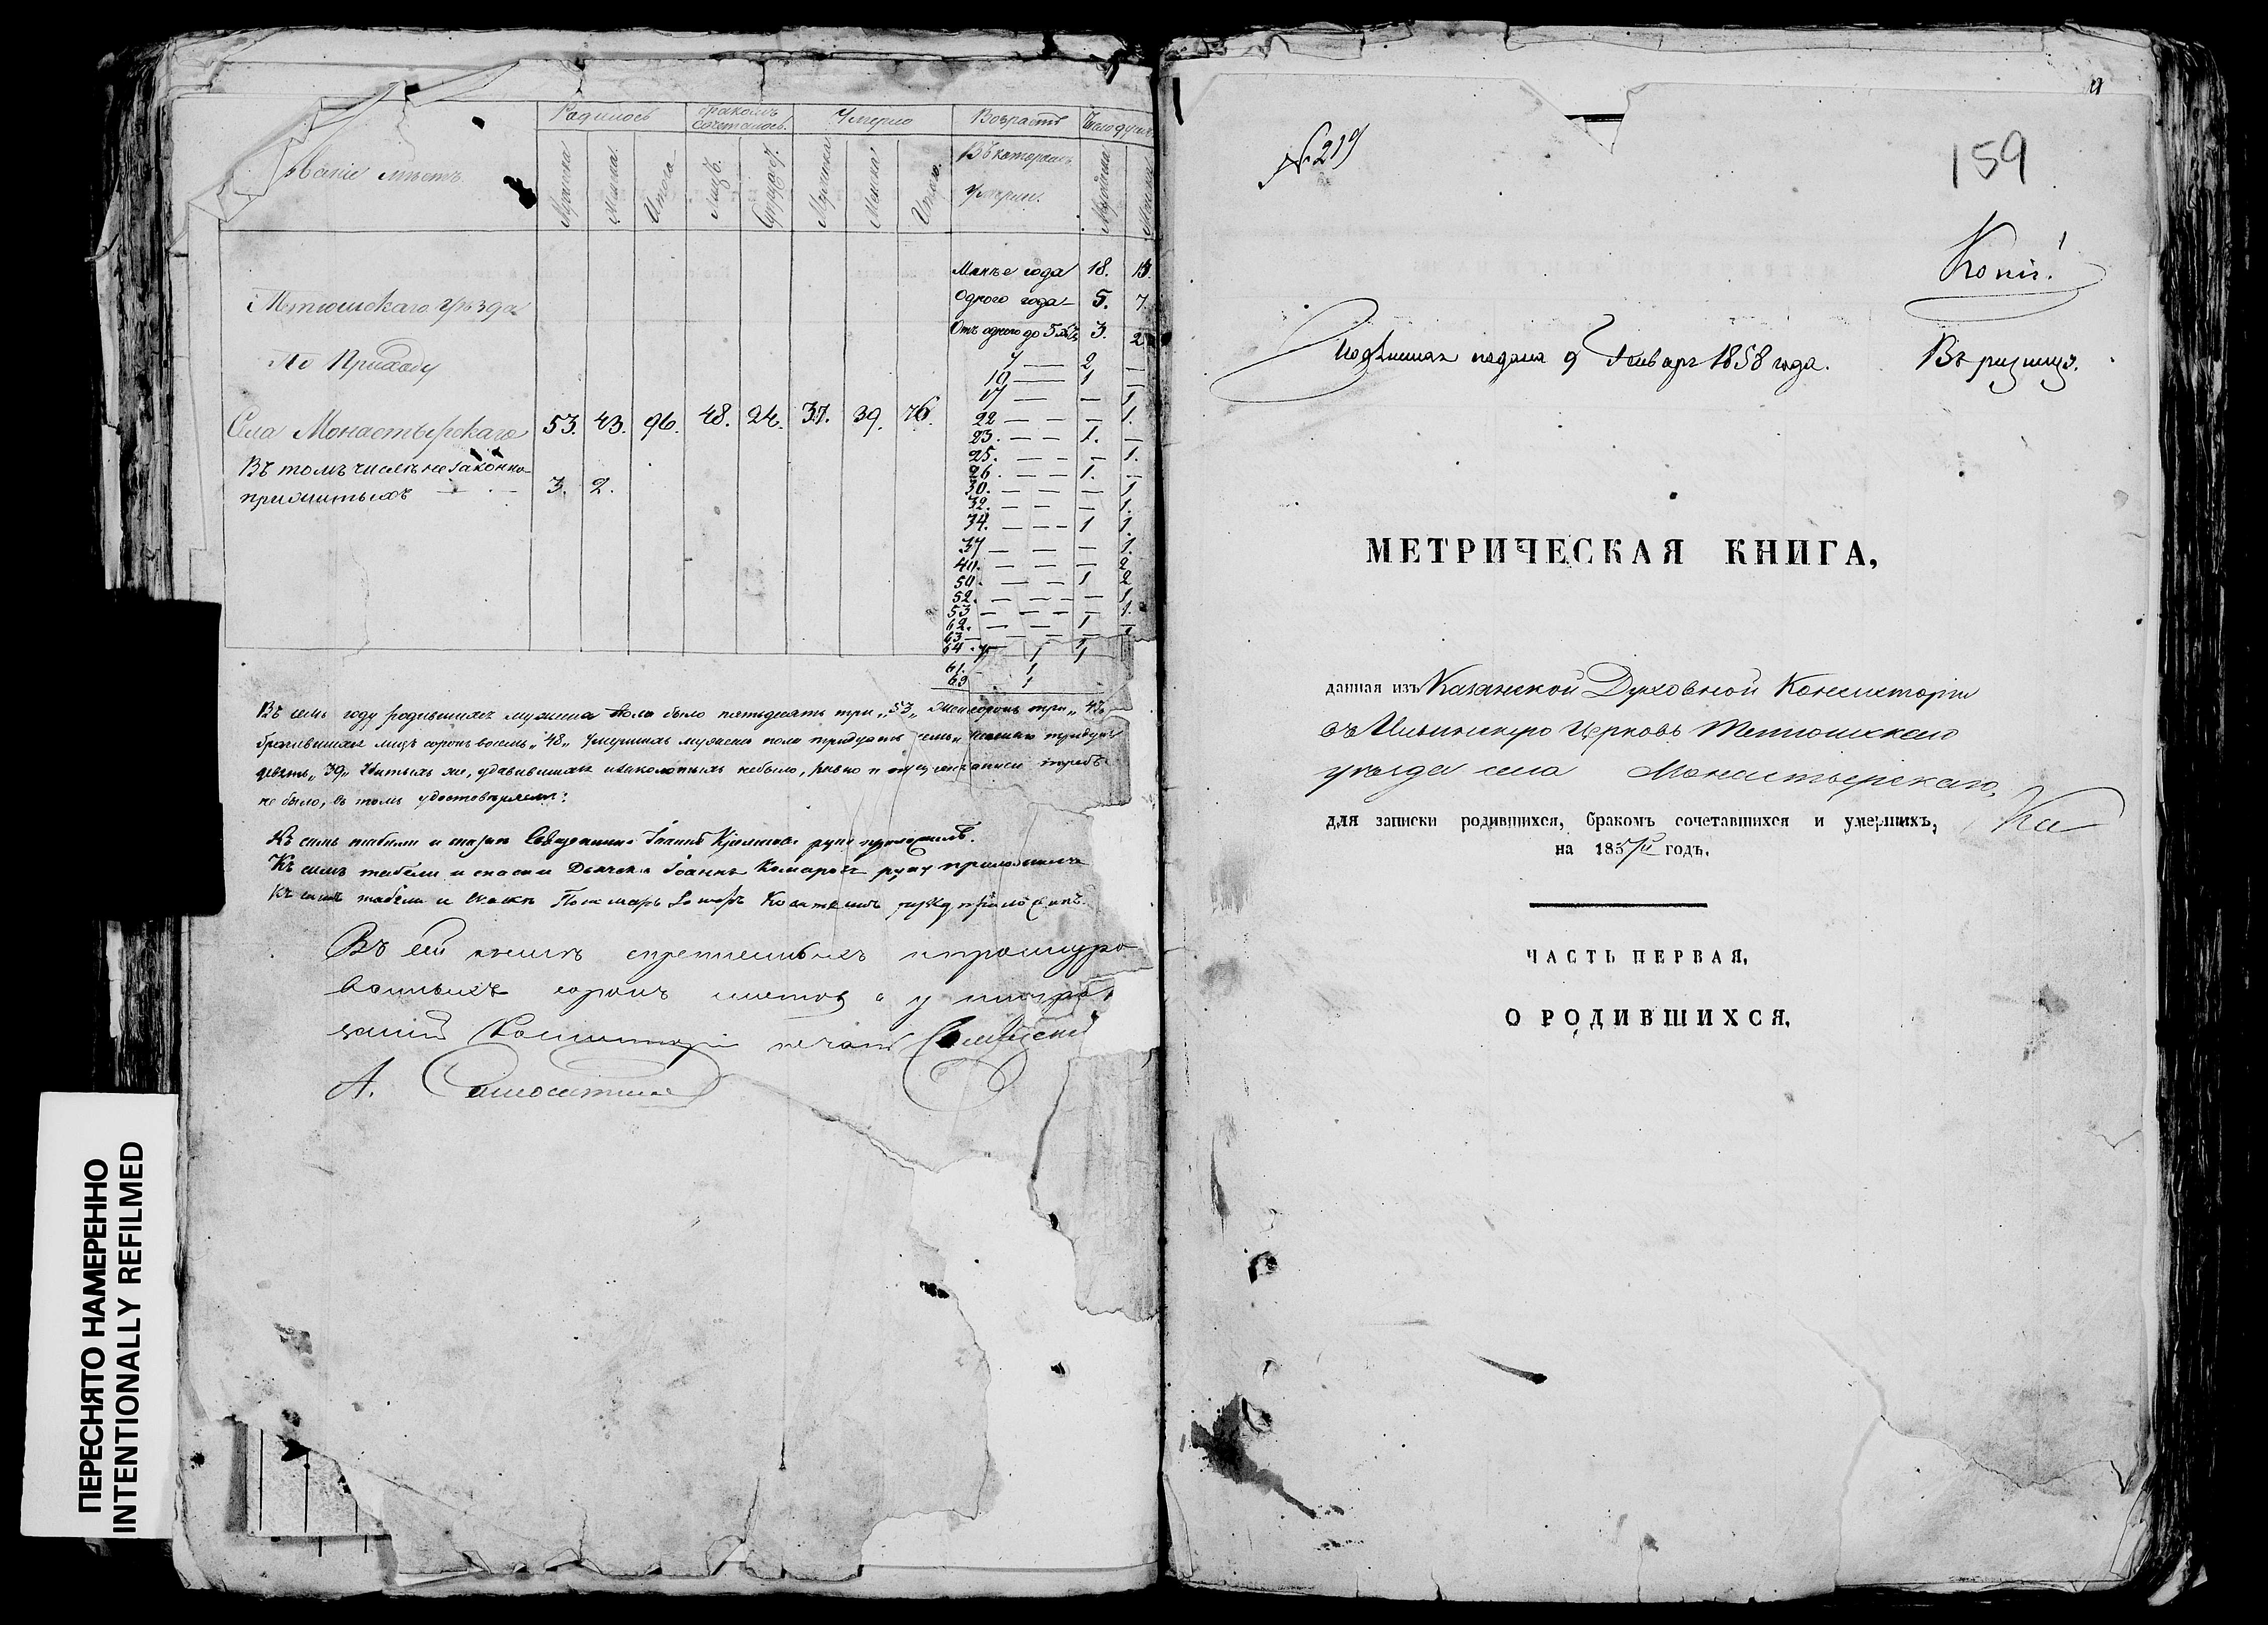 Родилось
Бракомъ сочеталось.
Умерло
Возрастъ
Число душъ
Званіе мѣстъ.
Мужеска
Женска.
Итого.
Лицъ.
Супруж.
Мужеска
Женска
Итого.
Въ которомъ умерли.
Мужеска
Женска
Менѣе года 18. 13.
Одного года 5. 7.
Отъ одного до 5 3. 2
Тетюшскаго Уѣзда
По Приходу
7 — 2 —
10 — 1 —
17 — — 1
22 — — — 1.
Села Монастырскаго 53. 43. 96. 48. 24. 37. 39. 76.
23. — — 1. —
25. — — — 1.
26. — — 1. —
Въ томъ числѣ незаконно-
прижитыхъ — — 3. 2.
30. — — — 1
32. — — — 1.
34. — — 1 1
37 — — — 1.
40. — — — 2
50. — — 1 2
52. — — — 1
53 — — — 1.
62. — — 1 —
63 — — — 1
64. 1 1
61. 1
69 1
Въ семъ году родившихся мужеска пола было пятьдесятъ три „53„ женска сорокъ три „43„
бракившихся лицъ сорокъ восемь „48„ умершихъ мужеска пола тридцать семь женска тридцать
девять „39„ убитыхъ же, удавившихся небыло, равно и
не было, въ томъ удостовѣряемъ:
Къ симъ табели и Священникъ Іоаннъ руку приложилъ.
Къ симъ табели и Дьячекъ Іоаннъ Комаровъ руку приложилъ
Къ симъ табели и Пономарь руку приложилъ.
Въ сей книгѣ скрепленныхъ и прошнуро
ванныхъ сорокъ листовъ
Консисторіи печать
А.
№ 219
159
Копія.
Подлинная подана 9 Января 1858 года. Въ ризницу.
МЕТРИЧЕСКАЯ КНИГА,
данная изъ Казанской Духовной Консисторіи
въ Ильинскую Церковь Тетюшскаго
уѣзда села Монастырскаго,
для записки родившихся, бракомъ сочетавшихся и умершихъ,
на 1857й годъ.
ЧАСТЬ ПЕРВАЯ,
О РОДИВШИХСЯ.
ПЕРЕСНЯТО НАМЕРЕННО
INTENTIONALLY REFILMED